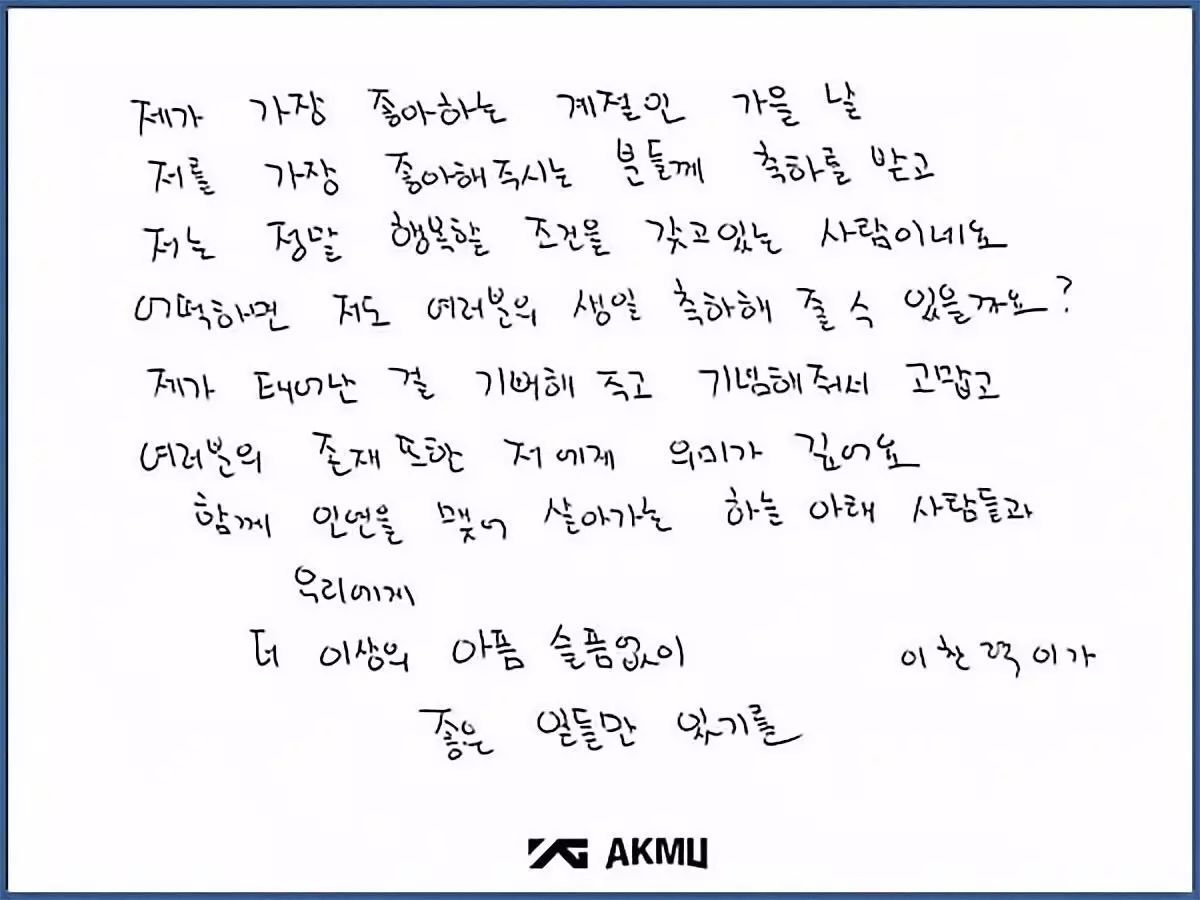 제가 가장 좋아하는 계절인 가을 날
저를 가장 좋아해주시는 분들께 축하를 받고
저는 정말 행복할 조건을 갖고있는 사람이네요
어떡하면 저도 여러분의 생일 축하해 줄 수 있을까요?
제가 태어난 걸 기뻐해 주고 기념해줘서 고맙고
여러분의 존재 또한 저에게 의미가 깊어요
함께 인연을 맺어 살아가는 하늘 아래 사람들과
우리에게
더 이상의 아픔 슬픔없이
이찬혁이가
좋은 일들만 있기를
YG AKMU